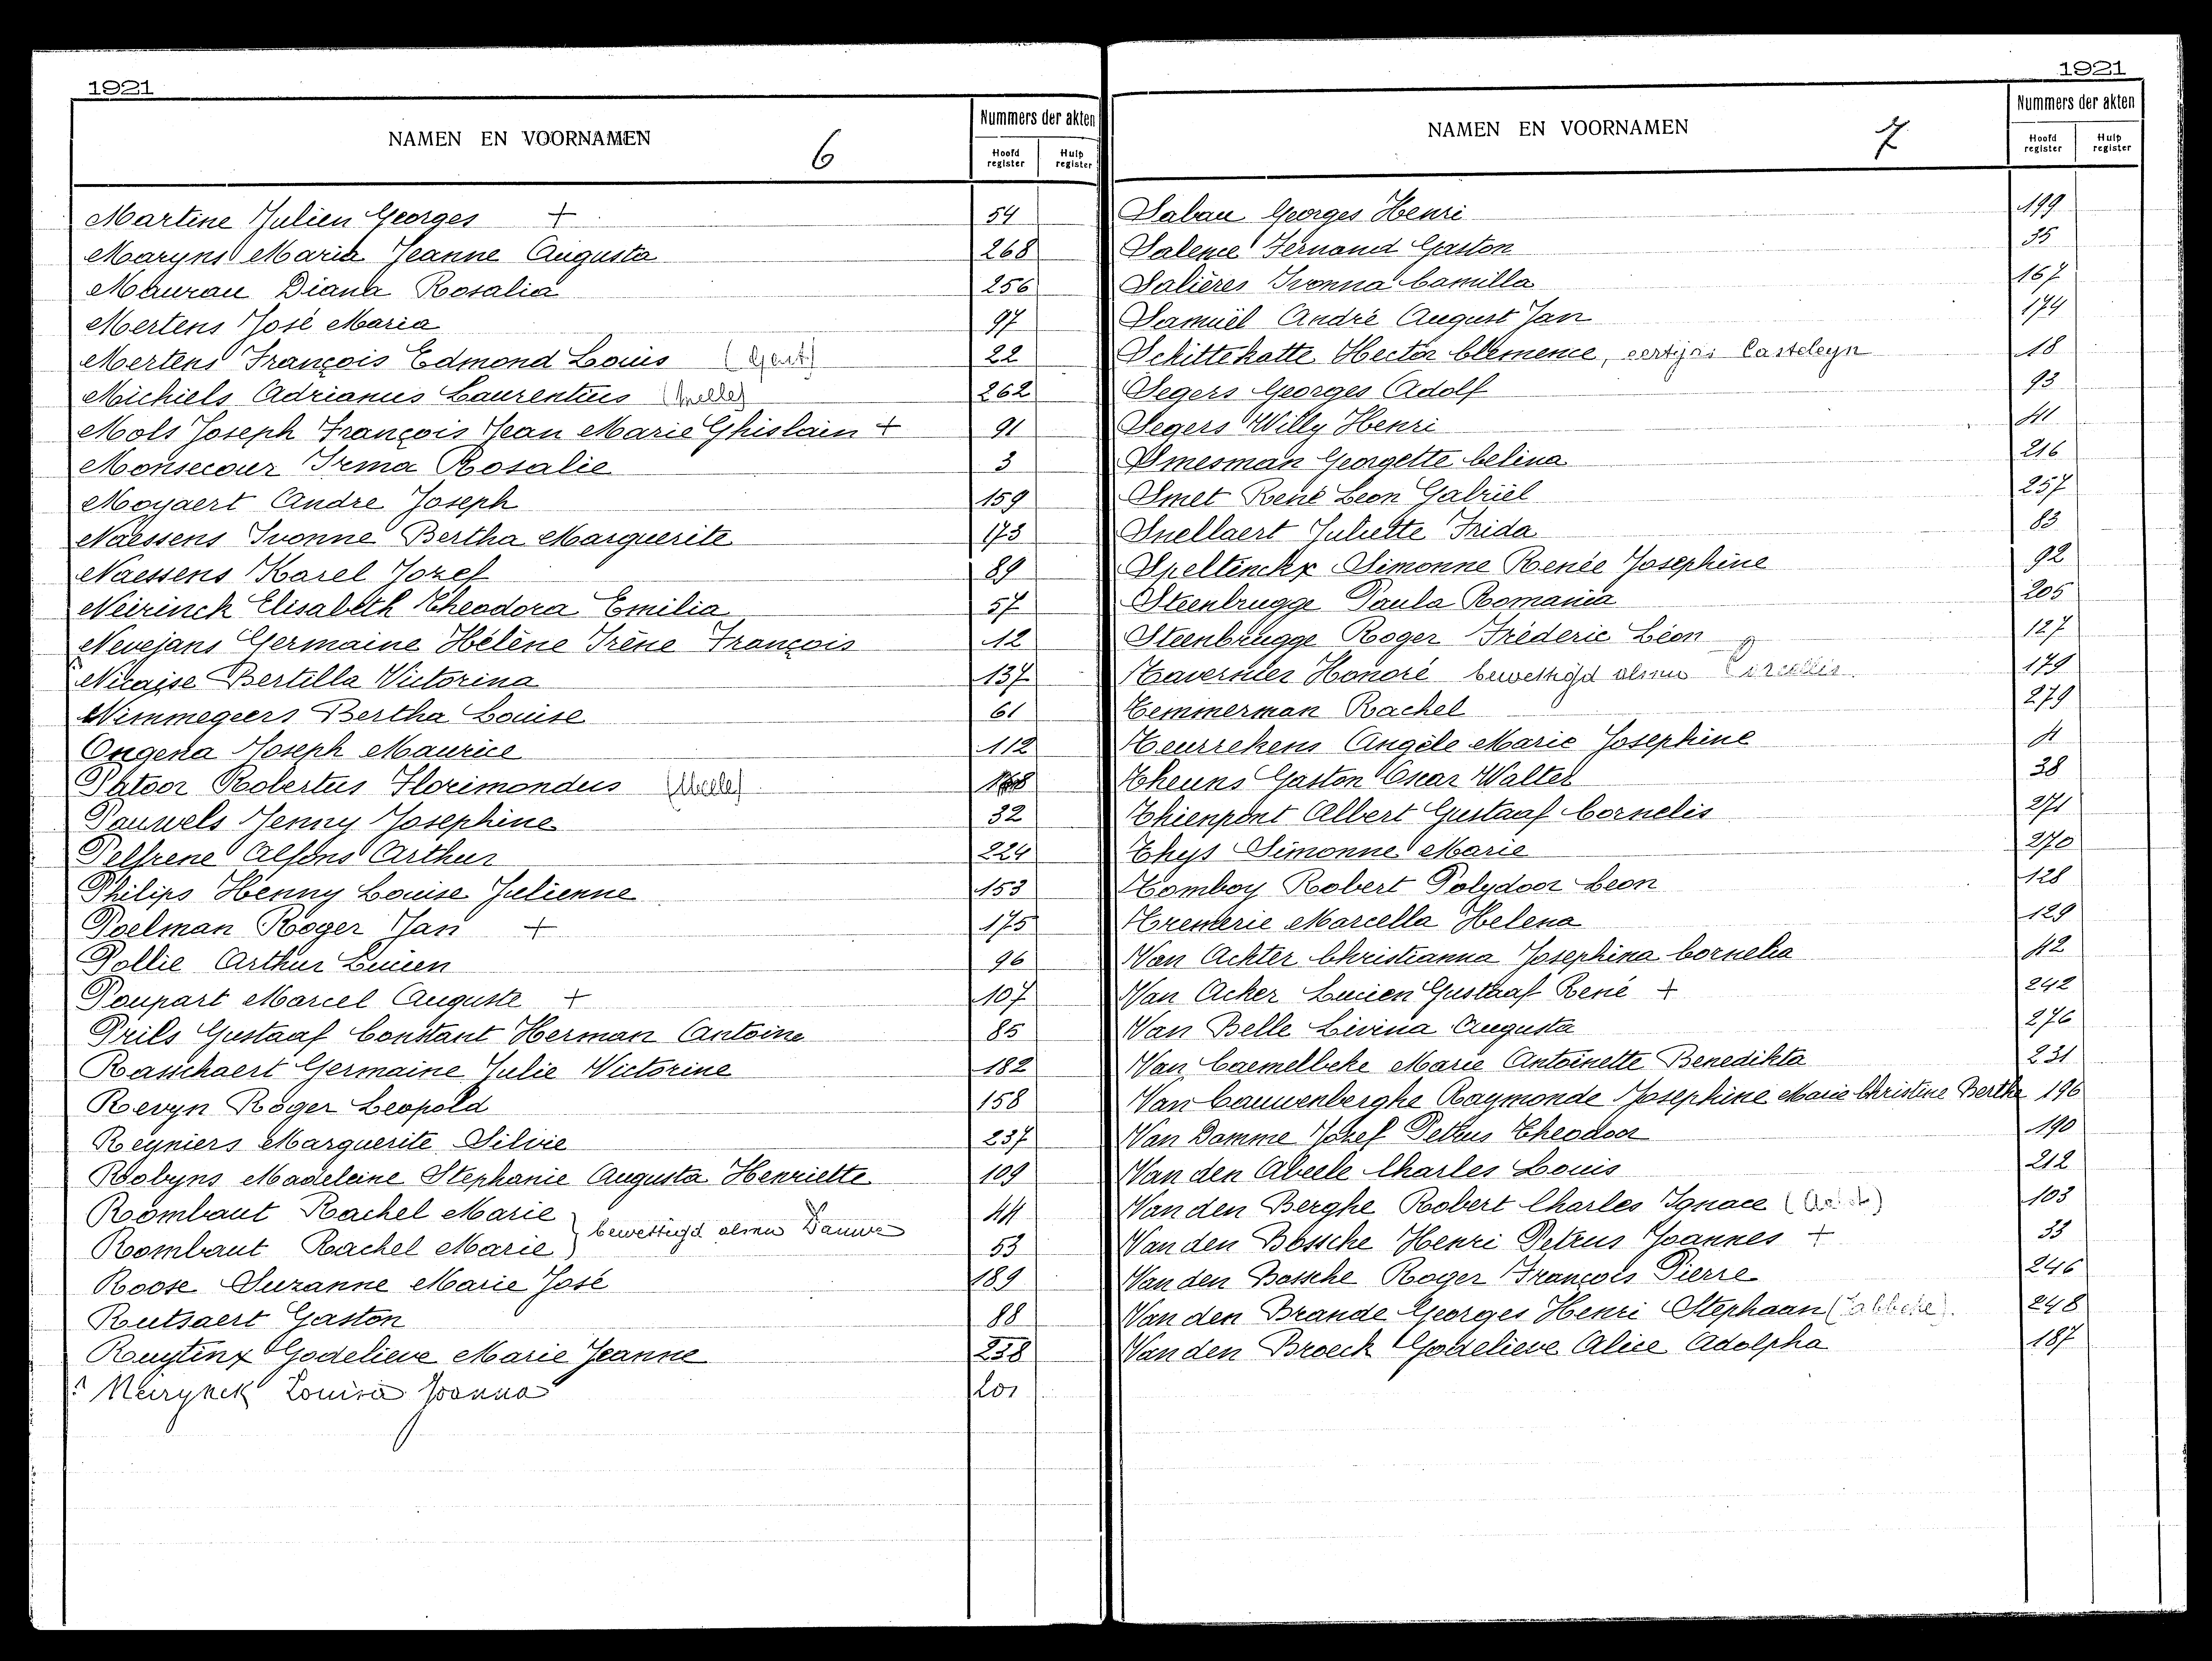 1921
NAMEN EN VOORNAMEN
6
Nummers der akten
Hoofd register
Hulp register
Martine Julien Georges + 54
Maryns Maria Jeanne Augusta 268
Maurau Diana Rosalia 256
Mertens José Maria 97
Mertens François Edmond Louis (Gent) 22
Michiels Adrianus Laurentius (Melle) 262
Mols Joseph François Jean Marie Ghislain + 91
Monsecour Irma Rosalie 3
Moyaert Andre Joseph 159
Naessens Ivonne Bertha Marguerite 173
Naessens Karel Jozef 89
Neirinck Elisabeth Theodora Emilia 57
Nevejans Germaine Hélène Irène François 12
Nicaise Bertilla Victorina 137
Nimmegeers Bertha Louise 61
Ongena Joseph Maurice 112
Patoor Robertus Florimondus (Melle)
Pauwels Jenny Josephine 32
Pelfrene Alfons Arthur 224
Philips Henny Louise Julienne 153
Poelman Roger Jan + 175
Pollie Arthur Lucien 96
Poupart Marcel Auguste + 107
Prils Gustaaf Constant Herman Antoine 85
Rasschaert Germaine Julie Victorine 182
Revyn Roger Leopold 158
Reyniers Marguerite Silvie 237
Robyns Madeleine Stephanie Augusta Henriette 109
Rombaut Rachel Marie 44
bewettigd alsnu Dauwe
Rombaut Rachel Marie 53
Roose Suzanne Marie José 189
Rutsaert Gaston 88
Ruytinx Godelieve Marie Jeanne 238
Meirynck Louisa Joanna 201
1921
NAMEN EN VOORNAMEN
7
Nummers der akten
Hoofd register
Hulp register
Sabau Georges Henri 199
Salence Fernand Gaston 35
Salières Ivonna Camilla 167
Samuël André August Jan 174
Schittekatte Hector Clemence, Casteleyn 18
Segers Georges Adolf 93
Segers Willy Henri 41
Smesman Georgette Celina 216
Smet René Leon Gabriël 257
Snellaert Juliette Frida 83
Speltinckx Simonne Renée Josephine 92
Steenbrugge Paula Romania 205
Steenbrugge Roger Fréderic Léon 127
Tavernier Honoré bewettigd alsnu 179
Temmerman Rachel 279
Teurrekens Angèle Marie Josephine 4
Theuns Gaston Oscar Walter 38
Thienpont Albert Gustaaf Cornelis 271
Thys Simonne Marie 270
Tomboy Robert Polydoor Leon 128
Tremerie Marcella Helena 129
Van Achter Christianna Josephina Cornelia 42
Van Acker Lucien Gustaaf René + 242
Van Belle Livina Augusta 276
Van Caemelbeke Marie Antoinette Benedikta 231
Van Cauwenberghe Raymonde Josephine Marie Christine Bertha 196
Van Damme Jozef Petrus Theodoor 190
Van den Abeele Charles Louis 212
Van den Berghe Robert Charles Ignace 103
Van den Bossche Henri Petrus Joannes + 33
Van den Bossche Roger François Pierre 246
Van den Brande Georges Henri Stephaan 248
Van den Broeck Godelieve Alice Adolpha 187